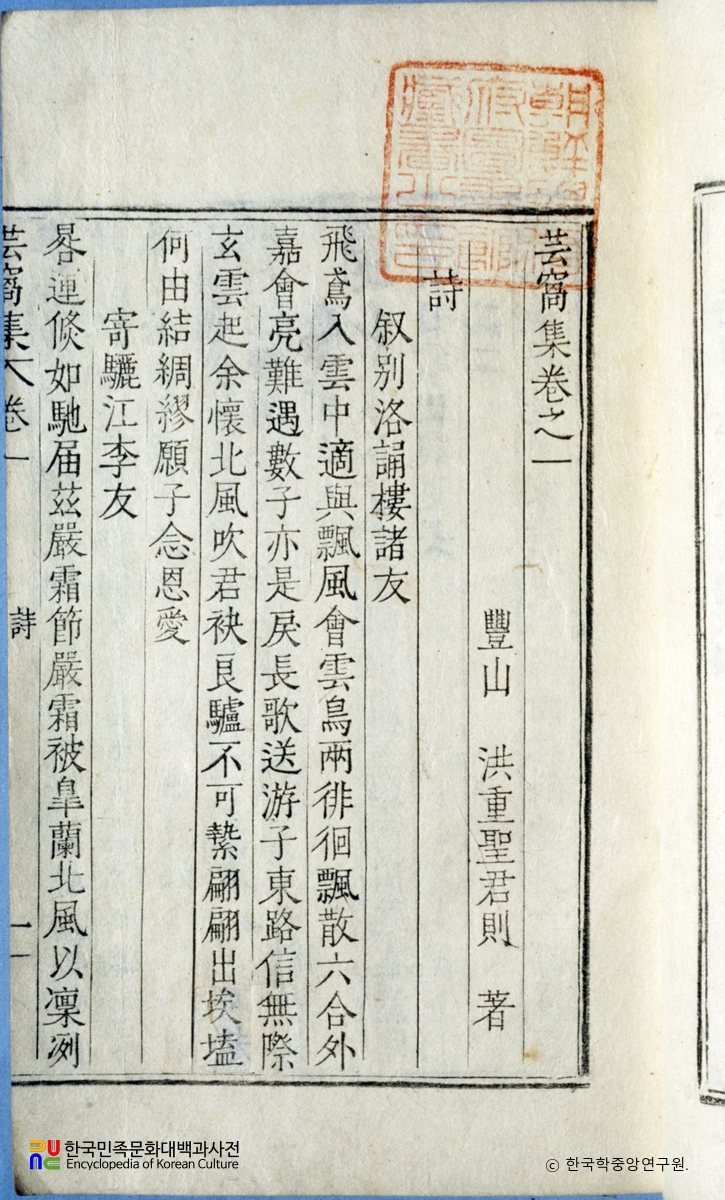 芸窩集卷之一
豐山 洪重聖君則 著
詩
叙别洛誦樓諸友
飛鳶入雲中適與飄風會雲鳥兩徘徊飄散六合外
嘉會亮難遇數子亦是戾長歌送游子東路信無際
玄雲起余懷北風吹君袂良驢不可縶翩翩出埃壒
何由結綢繆願子念恩愛
寄驪江李友
晷運倏如馳届茲嚴霜節嚴霜被臯蘭北風以凜冽
芸窩集 卷一
詩
一
한국민족문화대백과사전
Encyclopedia of Korean Culture
© 한국학중앙연구원.